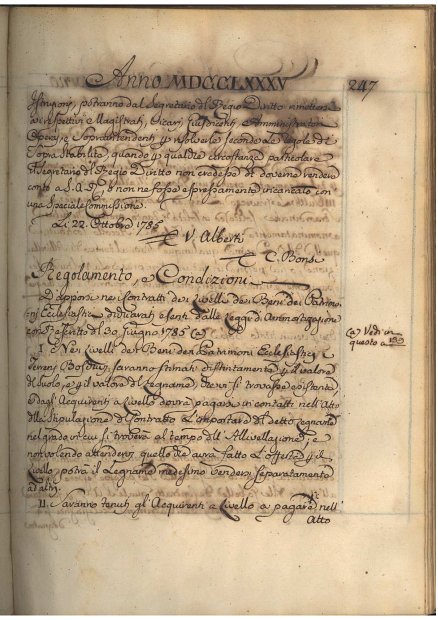 Anno MDCCLXXXV
247
Istruzioni, potranno dal Segretario del Regio Diritto rimettersi
ai rispettivi Magistrati, Vicari, Giusdicenti, Amministratori
Opere, e Soprintendenti p. risolversi secondo le regole di
sopra stabilite, quando p. qualche circostanza particolare
il Segretario del Regio Diritto non credesse di doverne rendere
conto a S.A.R., o non ne fosse espressamente incaricato con
una Speciale Commissione.
Li 22. Ottobre 1785
V. Alberti
C. Bonsi
Regolamento, e Condizioni
Da apporsi nei Contratti dei Livelli dei Beni dei Patrimo-
nj Ecclesiastici dichiarati esenti dalle Leggi di Ammortizazione
con Rescritto del 30 Giugno 1785 (a)
(a) Vedi in
questo a 139
I. Nei Livelli dei Beni dei Patrimoni Ecclesiastici i
Terreni Boschivi saranno stimati distintamente p. il valore
del suolo, e p. il valore del Legname, che vi si trovasse esistente,
e dagl'Acquirenti a Livello dovrà pagarsi in contanti nell'Atto
della Stipulazione del Contratto l'importare del detto Legname
nel grado in cui si troverà al tempo dell'Allivellazione; e
non volendo attendervi quello che avrà fatto l'offerta p. il
Livello, potrà il Legname medesimo vendersi separatamente
ad altri.
II. Saranno tenuti gl'Acquirenti a Livello a pagare nell'
Atto